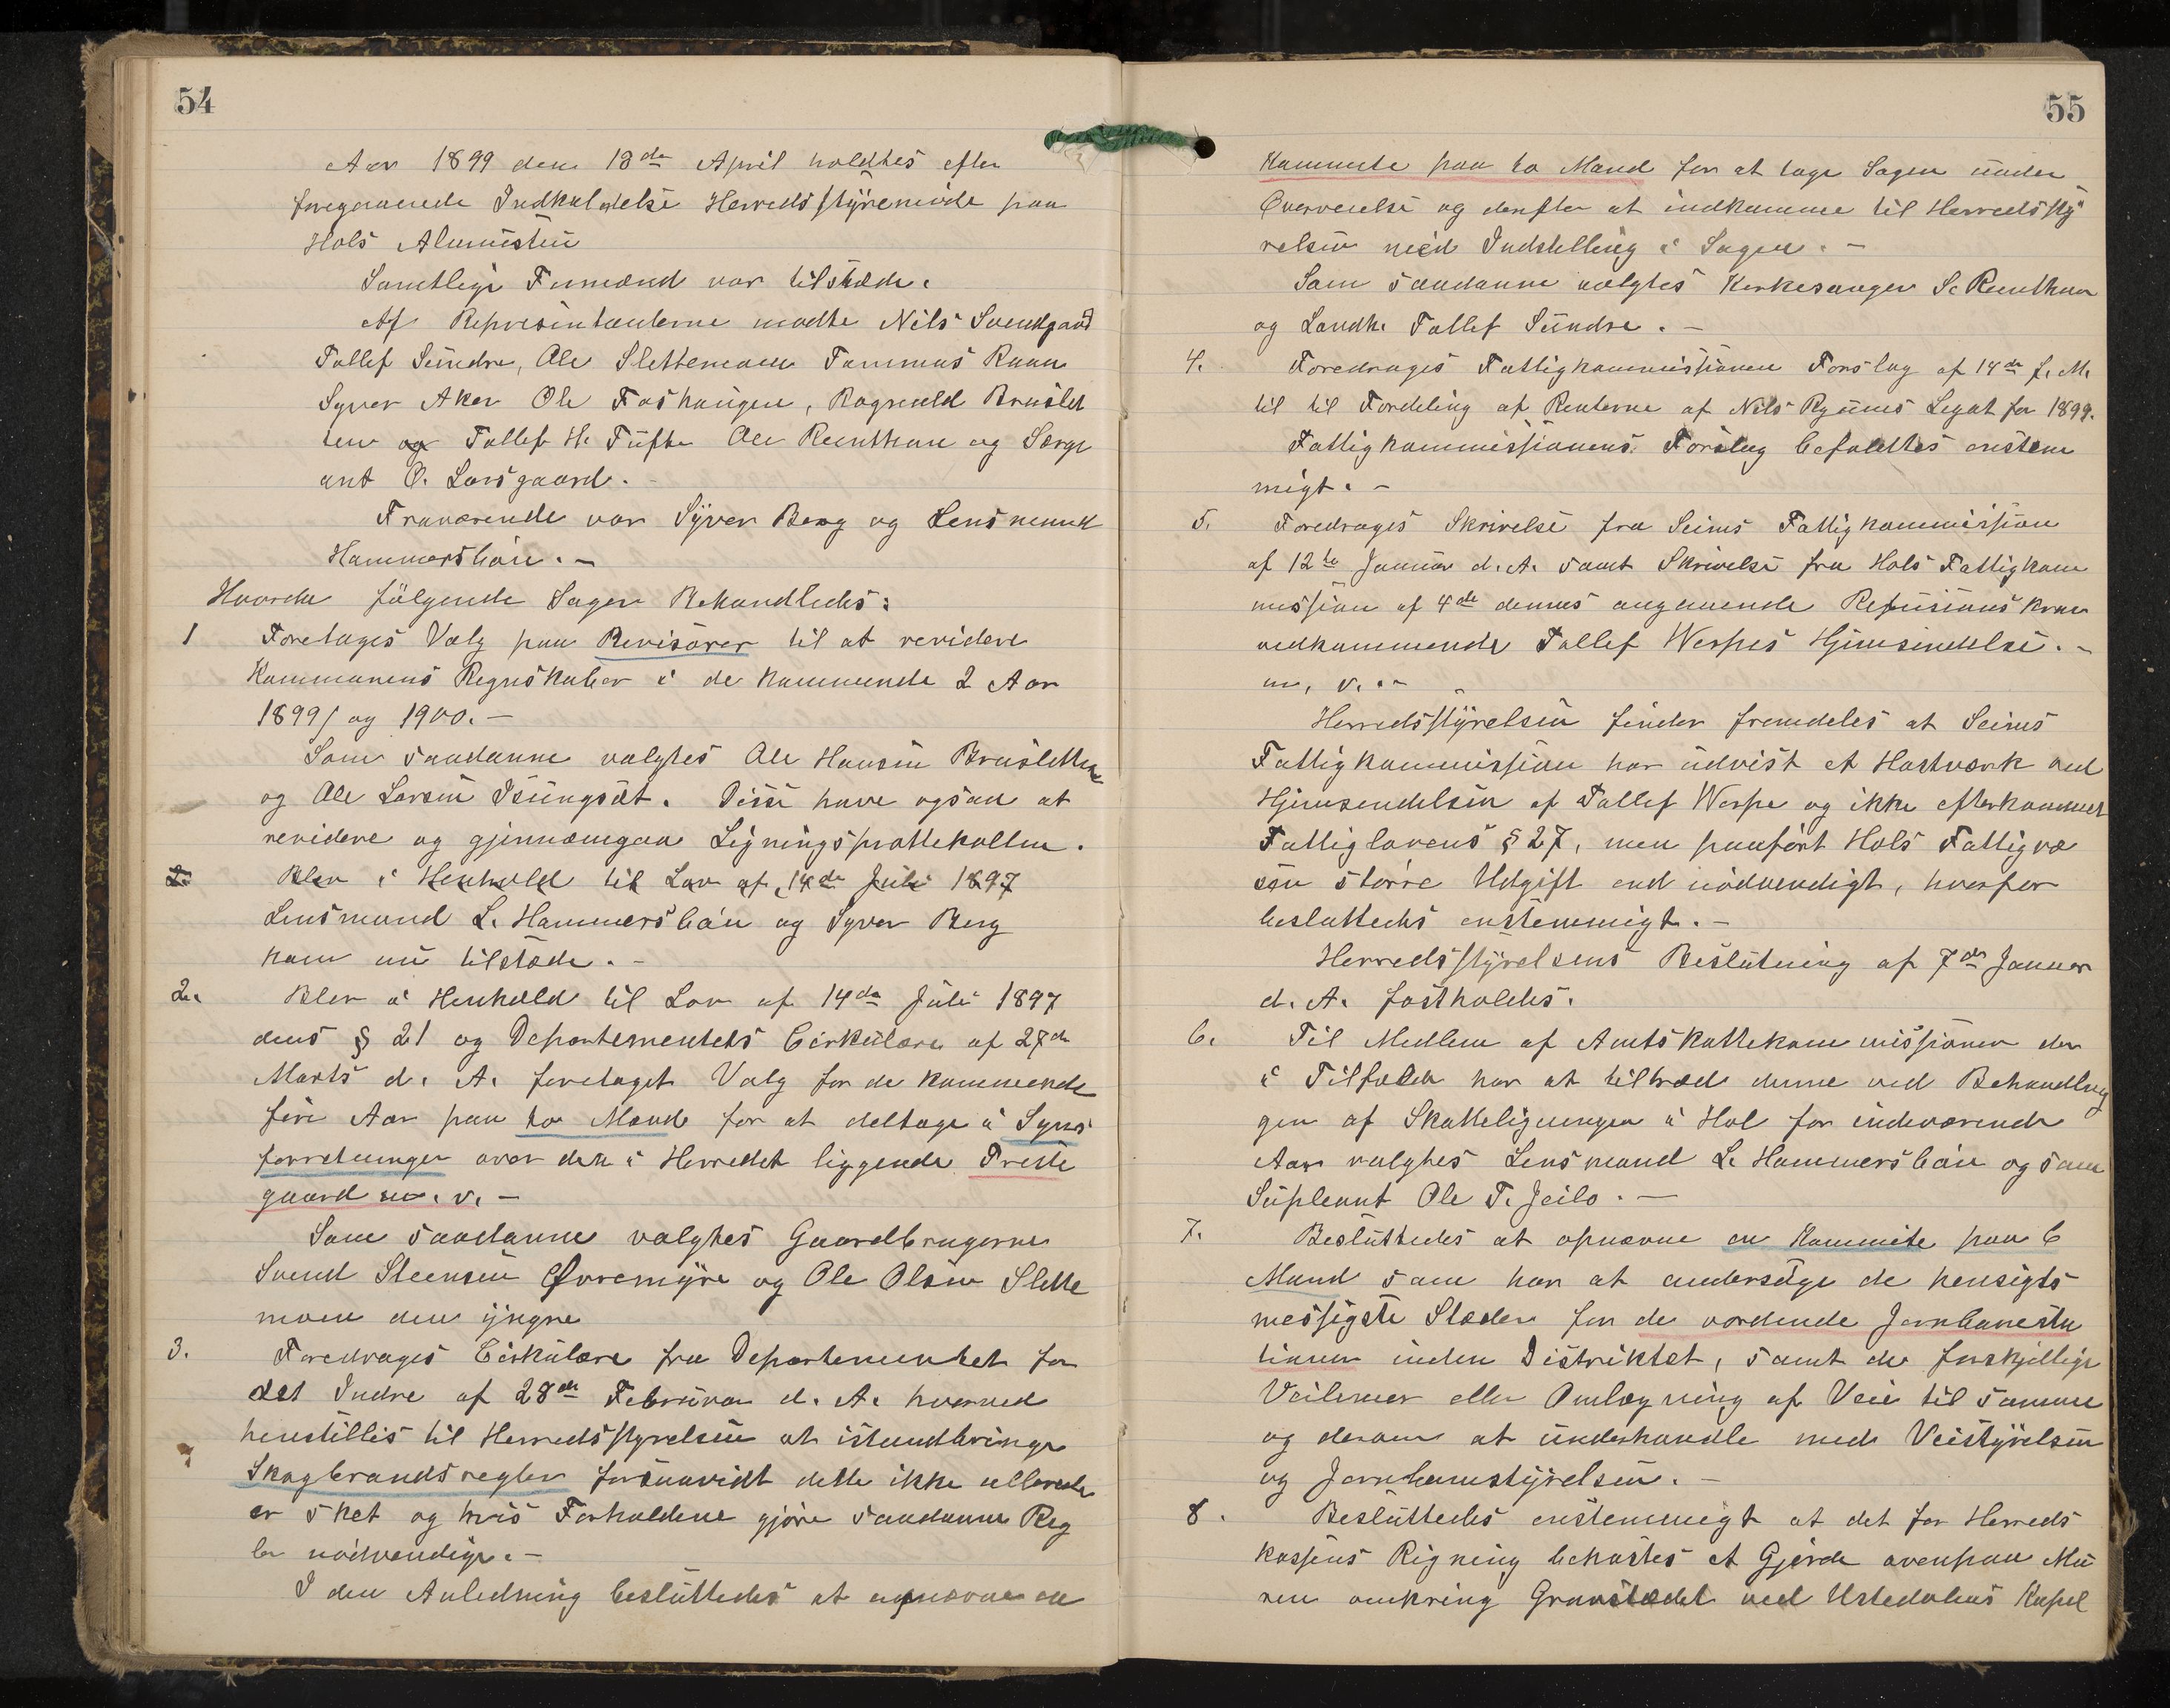 54
Aar 1899 den 13de April holdtes efter
foregaaende Indkaldelse Herredsstyremøde paa
Hols Almustue
Samtlige Formænd var tilstæde.
Af Repræsentanterne mødte Nils Svendgaard
Tollef Sundre, Ole Slettemoen Tommas Raan
Syver Aker Ole Foshaugen, Ragnvald Bruslet
ten og Tollef H. Tufte Ole Reinthon og Serge
ant O. Larsgaard.
Fraværende var Syver Berg og Lensmand
Hammersbøen. -
Hvorda følgende Sager Behandledes:
1 Foretages Valg paa Revisorer til at revidere
Kommunens Regnskaber i de kommende 2 Aar
1899/ og 1900. -
Som saadanne valgtes Ole Hansen Bruslettene
og Ole Larsen Isungset. Disse have ogsaa at
revidere og gjennemgaa Ligningsprottekollen.
2. Blev i Henhold til Lov af 14de Juli 1897
Lensmand L. Hammersbøen og Syver Berg
kom nu tilstæde. -
2. Blev i Henhold til Lov af 14de Juli 1897
dens § 21 og Departementets Cirkulære af 27de
Marts d. A. foretaget Valg for de kommende
fire Aar paa to Mænd for at deltage i Syns
forretninger over den i Herredet liggende Preste
gaard m. v. -
Som saadanne valgtes Gaardbrugerne
Svend Steensen Øvremyre og Ole Olsen Slette
moen den yngre
3. Foredrages Cirkulære fra Departementet for
det Indre af 28de Februar d. A. hvorved
henstilles til Herredsstyrelsen at istandbringe
Skogbrandsregler forsaavidt dette ikke allerede
er sket og hvis Forholdene gjøre saadanne Reg
ler nødvendige. -
I den Anledning besluttedes at opnævne en
55
Kommite paa to Mand for at tage Sagen under
Overveielse og derefter at indkomme til Herredssty
relsen med Indstilling i Sagen. -
Som saadanne valgtes Kirkesanger S. Reinthon
og Landh. Tollef Sundre. -
4. Foredrages Fattigkommissionen Forslag af 14de f. M.
til til Fordeling af Renterne af Nils Rynes Legat for 1899.
Fattigkommissionens Forslag befaldtes enstem
migt. -
5. Foredrages Skrivelse fra Seims Fattigkommission
af 12te Januar d. A. samt Skrivelse fra Hols Fattigkom
mission af 4de dennes angaaende Refusions krav
vedkommende Tollef Werpes Hjemsendelse. -
m. v. -
Herredsstyrelsen finder fremdeles at Seims
Fattigkommission har udvist et Hastværk ved
Hjemsendelsen af Tollef Werpe og ikke efterkommet
Fattiglovens § 27, men paaført Hols Fattigvæ
sen større Udgift end nødvendigt, hvorfor
besluttedes enstemmigt. -
Herredsstyrelsens Beslutning af 7de Januar
d. A. fastholdes.
6. Til Medlem af Amtskattekommissionen der
i Tilfælde har at tiltræde denne ved Behandlin
gen af Skatteligningen i Hol for indeværende
Aar valgtes Lensmand L. Hammersbøen og som
Supleant Ole T. Jeilo. -
7. Besluttedes at opnævne en Kommite paa 6
Mand som har at undersøge de hensigts
messigste Stæder for de vordende Jernbanesta
tioner inden Distriktet, samt de forskjellige
Veilinier eller Omlægning af Veie til samme
og derom at underhandle med Veistyrelsen
og Jernbanestyrelsen. -
8. Besluttedes enstemmigt at det for Herreds
kassens Rigning bekostes et Gjerde ovenpaa Mu
ren omkring Gravstædet ved Ustedalens Kapel